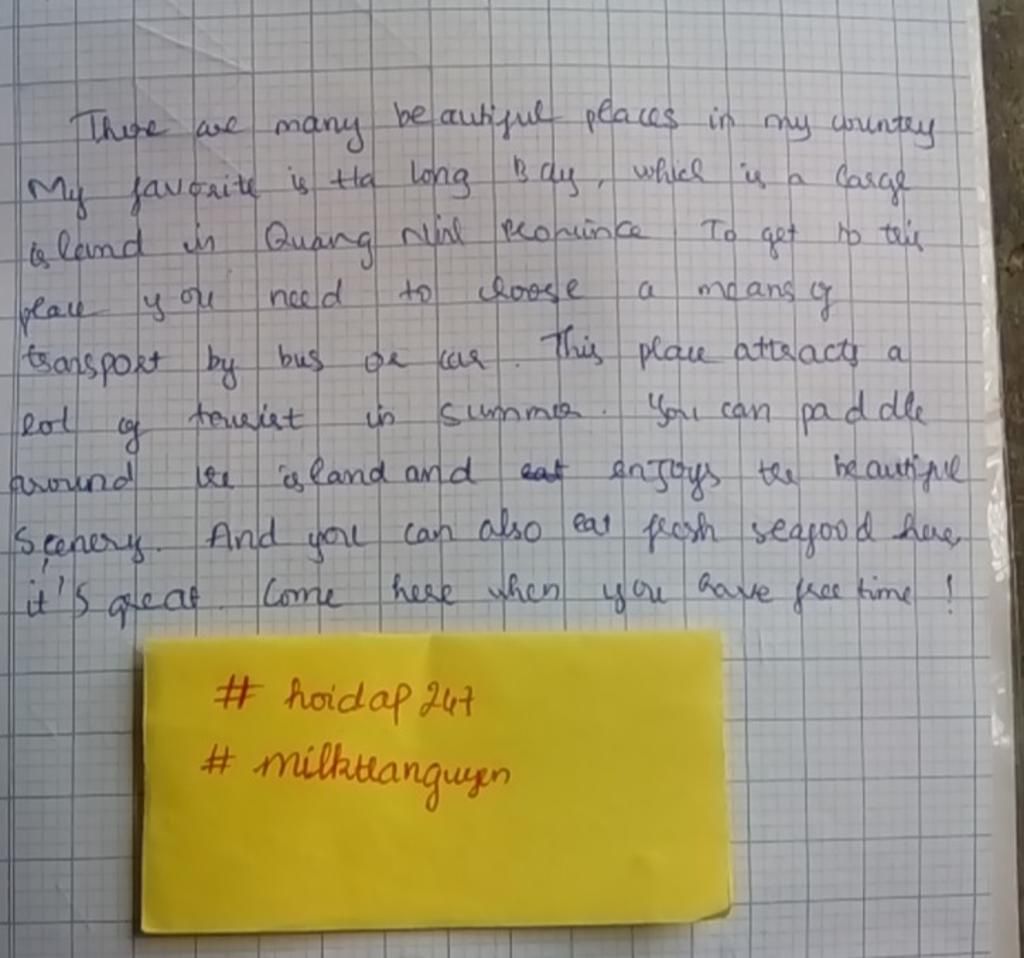 There are many beautiful places in my country
My favorite is Ha long Bay, which is a large
island in Quang Ninh province To get to this
place you need to choose a means of
transport by bus or car. This place attracts a
lot of tourist in summer. You can paddle
around the island and eat enjoys the beautiful
scenery. And you can also eat fresh seafood here,
it's great. Come here when you have free time !
# hoidap 247
# milkteanguyen